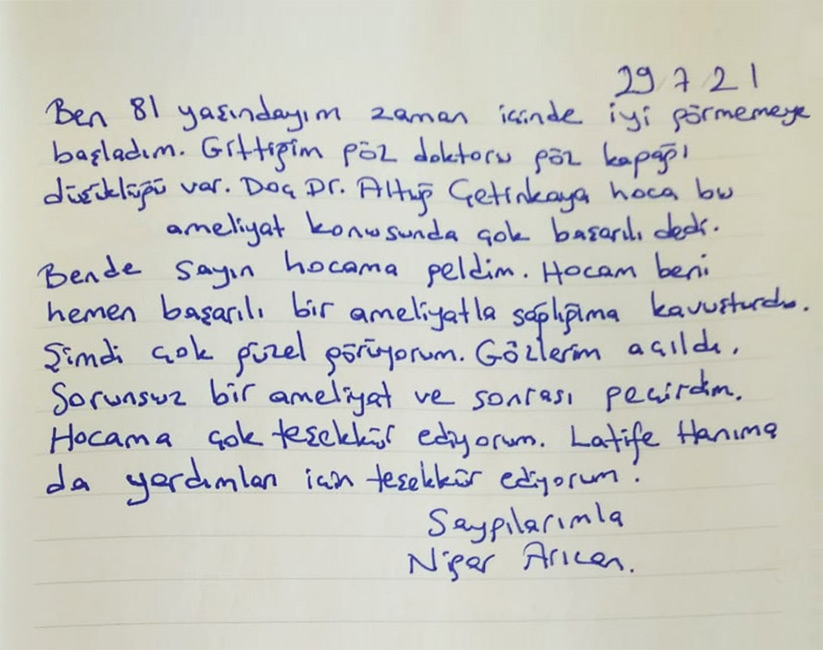 29 7 21
Ben 81 yaşındayım zaman içinde iyi görmemeye
başladım. Gittiğim göz doktoru göz kapağı
düşüklüğü var. Doç Dr. Altuğ Çetinkaya hoca bu
ameliyat konusunda çok başarılı dedi.
Bende sayın hocama geldim. Hocam beni
hemen başarılı bir ameliyatla sağlığıma kavuşturdu.
Şimdi çok güzel görüyorum. Gözlerim açıldı.
Sorunsuz bir ameliyat ve sonrası geçirdim.
Hocama çok teşekkür ediyorum. Latife Hanıma
da yardımları için teşekkür ediyorum.
Saygılarımla
Nigar Arıcan.